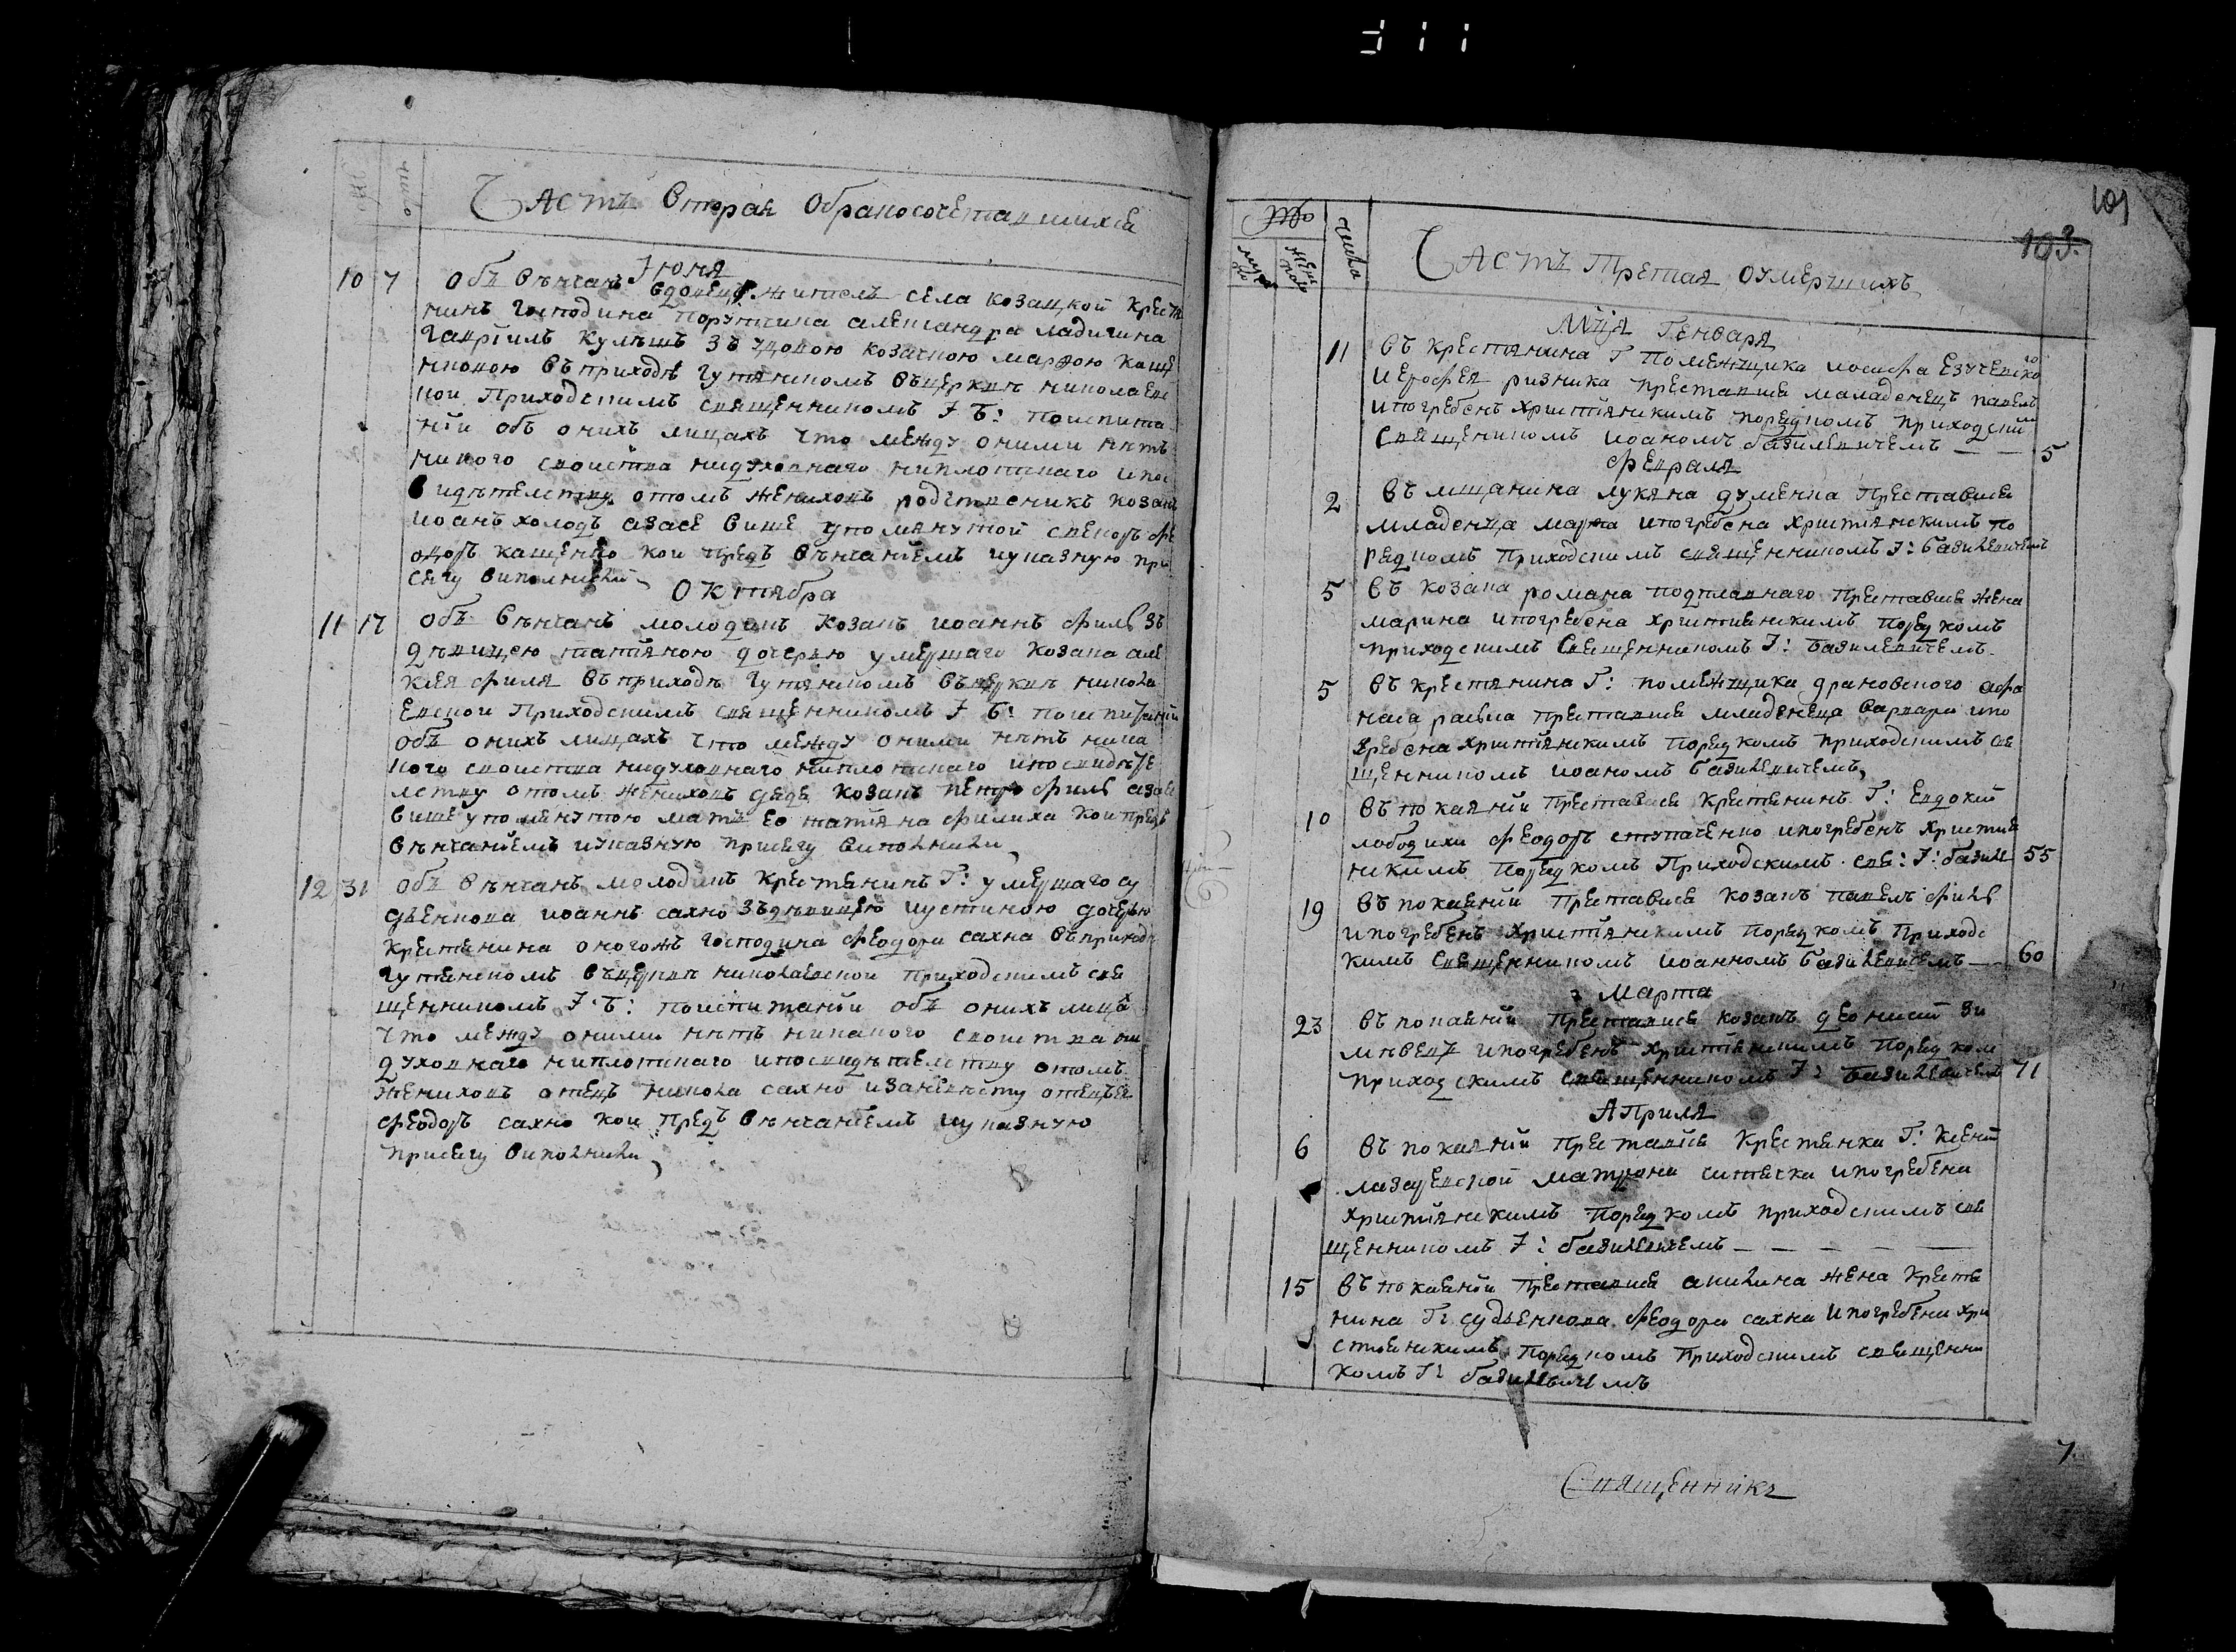 Часть Вторая Обракосочетавшихся
число
Іюня
10 7 Объ венчанъ вдовецъ житель села козацкой крестя
нинъ Господина Поруччика александра ладигина
Гавріилъ Кулѣшъ зъ удовою козачкою марѳою каще
нковою въ приходѣ гутянскомъ въ церкве николаевс
кои Приходскимъ священникомъ І Б: поиспита
нїи объ онихъ лицахъ что между оними нѣтъ
никого своиства нидуховнаго ниплотнаго ипос
видѣтелству отомъ женихов родственикъ козакъ
иоанъ холодъ азасе више упомянутой свекоръ фе
одоръ кащенко кои предъ венчанїемъ иуказную при
сягу виполнили
Октября
11 17 Объ венчанъ молодикъ козакъ иоаннъ филь зъ
дѣвицею татїаною дочерью умершаго козака але
ксея филя въ приходѣ гутянскомъ въ церквѣ никола
евской Приходскимъ священникомъ І Б: поиспитанїи
объ онихъ лицахъ что между оними нѣтъ ника
кого своиства нидуховнаго ниплотнаго ипосвидѣте
лству отомъ женихов дядя козакъ петръ филь азасе
више упомянутою мать ее татїана филиха кои предъ
венчанїемъ иуказную присягу виполнили
12 31 Объ венчанъ молодикъ крестянинъ Г: умершаго су
дьенкова иоаннъ сахно зъ дѣвицею иустиною дочерью
крестянина оногожъ господина феодора сахна въ приходѣ
гутянскомъ въ церквѣ николаевской приходскимъ свя
щенникомъ І Б: поиспитанїи объ онихъ лицахъ
что между оними нѣтъ никакого своиства ни
духовнаго ниплотнаго ипосвидѣтелству отомъ
женихов отецъ никола сахно изаневѣсту отецъея
феодоръ сахно кои предъ венчанїемъ иуказную
присягу виполнили
101
103.
числа
Часть Третая оумершихъ
Мця Генваря
11 Въ крестянина Г помежщика иосифа Езучевского
иерофея ризника преставися маладенецъ павелъ
ипогребенъ христїянскимъ порядкомъ приходским
священикомъ иоаномъ базилевичемъ — — 5
Февраля
2 Въ мщанина лукяна думенка преставися
младенца марѳа ипогребена христїянскимъ по
рядкомъ Приходскимъ священникомъ І: базилевичемъ
5 Въ козака романа подплавнаго преставися жена
марина ипогребена христїянскимъ порядкомъ
приходскимъ священникомъ І: базилевичемъ
5 Въ крестянина Г: помежщика драновского афа
наса преставися младенеца варвара ипо
гребена христїянскимъ порядкомъ приходскимъ свя
щенникомъ иоаномъ базилевичемъ
10 Въ покаянїи преставися крестянинъ Г: Евдокїи
лободихи феодоръ ступаченко ипогребенъ христия
нскимъ порядкомъ Приходскимъ свя: І: базиле 55
19 Въ покаянїи преставися козакъ павелъ филь
ипогребенъ христїянскимъ порядкомъ Приходс
кимъ священникомъ иоанномъ базилевичемъ — 60
Марта
23 Въ покаянїи преставися козакъ деонисїй зи
мовецъ ипогребенъ христїянскимъ порядком
приходскимъ священникомъ І: базилевичемъ 71
Априля
6 Въ покаянїи преставися крестянка Г: ксенїи
матрона ипогребена
христїянскимъ порядкомъ приходскимъ свя
щенникомъ І: базилевичемъ — — — — —
15 Въ покаянїи преставися акилина жена крестя
нина Г: судьенкова феодора сахна ипогребена хри
стиянскимъ порядкомъ Приходскимъ священни
комъ І: базилевичемъ
7.
Священникъ